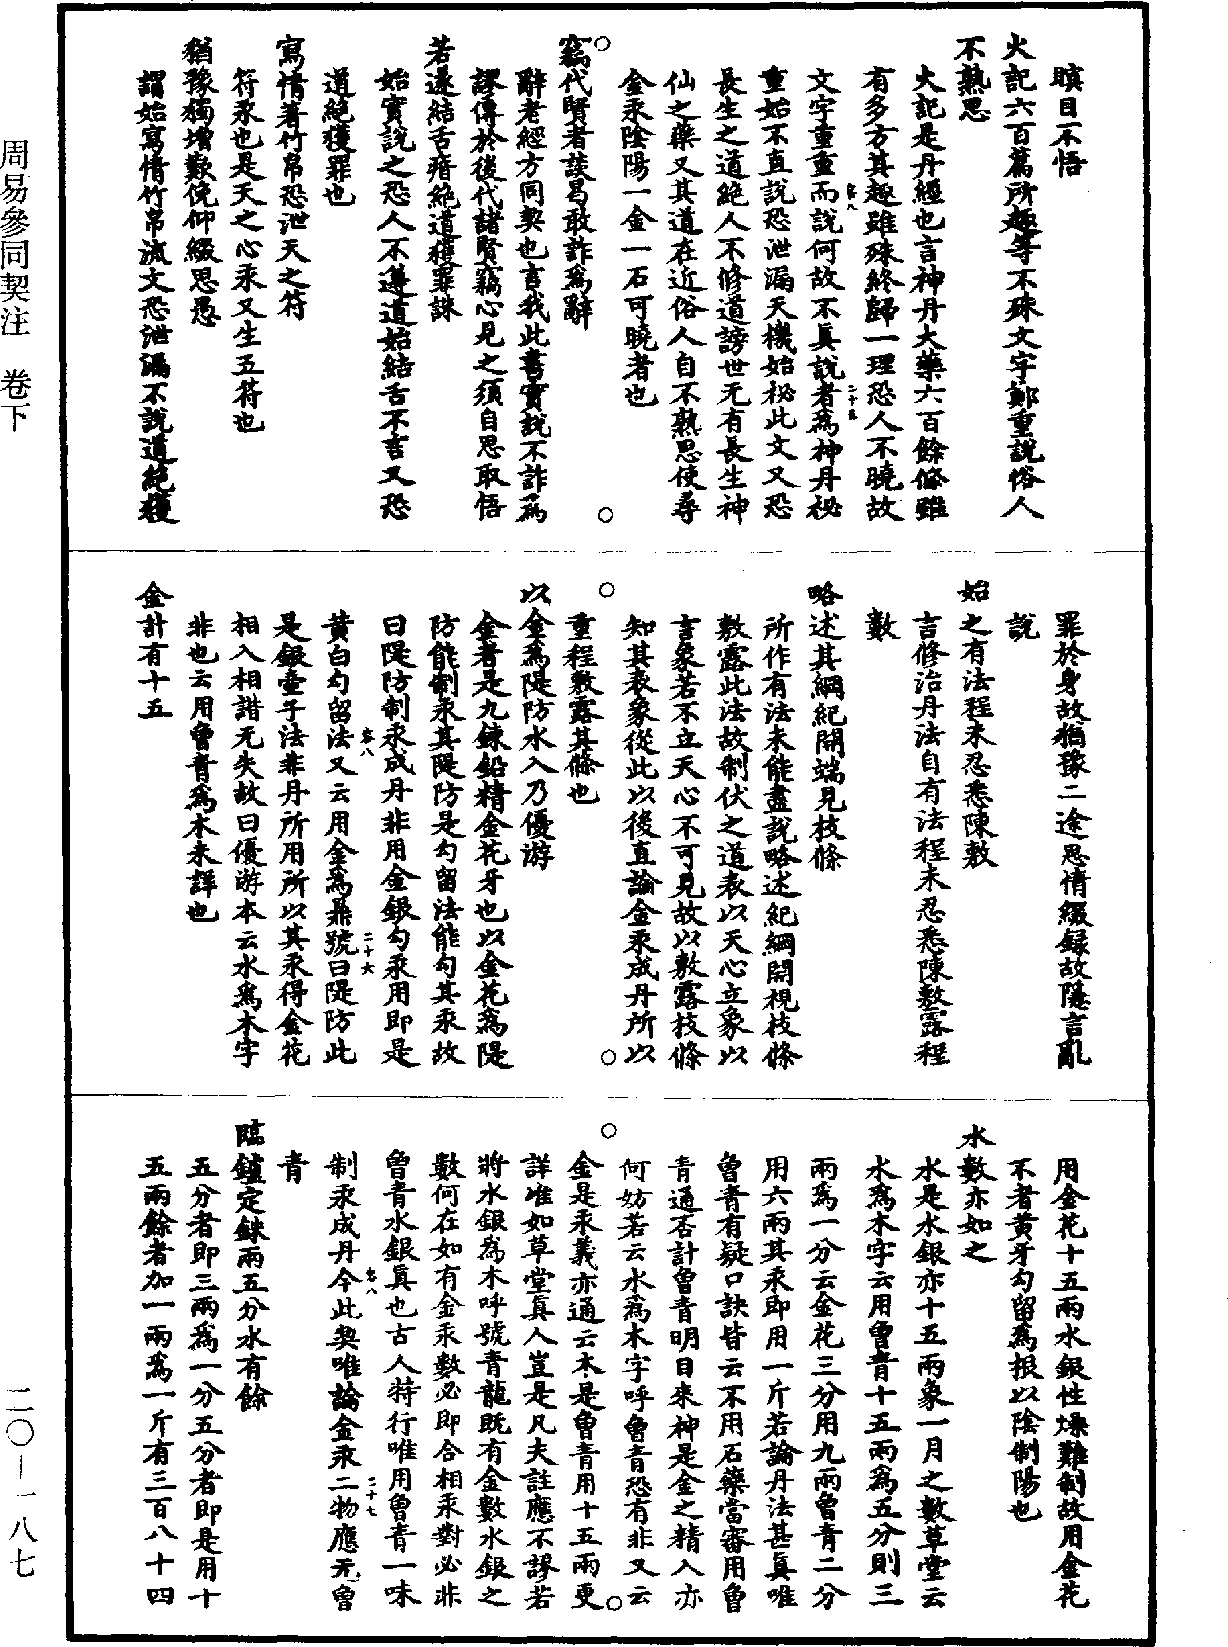 瞋目不悟
火記六百篇所趣等不殊文字鄭重說俗人
不熟思
火記是丹經也言神丹大藥六百餘條雖
有多方其趣雖殊終歸一理恐人不曉故
文字重重而說何故不真說者為神丹祕
重始不直說恐泄漏天機始祕此文又恐
長生之道絕人不修道謗世无有長生神
仙之藥又其道在近俗人自不熟思使尋
金汞陰陽一金一石可曉者也
竊代賢者談曷敢詐為辭
辭老經方同契也言我此書實說不詐為
謬傳於後代諸賢竊心見之須自思取悟
若遂結舌瘖絕道獲罪誅
始實說之恐人不遵道始結舌不言又恐
道絕獲罪也
寫情著竹帛恐泄天之符
符汞也是天之心汞又生五符也
猶豫獨增歎俛仰綴思愚
謂始寫情竹帛流文恐泄漏不說道絕獲
罪於身故猶豫二途思情綴録故隱言亂
說
始之有法程未忍悉陳敷
言修治丹法自有法程未忍悉陳敷露程
數
略述其綱紀開端見枝條
所作有法未能盡說略述紀綱開視枝條
敷露此法故制伏之道表以天心立象以
言象若不立天心不可見故以敷露枝條
知其表象從此以後直論金汞成丹所以
重程敷露其條也
以金為隄防水入乃優游
金者是九鍊鉛精金花牙也以金花為隄
防能制汞其隄防是勾留法能勾其汞故
曰隄防制汞成丹非用金銀勾汞用即是
黃白勾留法又云用金為鼎號曰隄防此
是銀壺子法非丹所用所以其汞得金花
相入相諧无失故曰優游本云水為木字
非也云用曾青為木未詳也
金計有十五
用金花十五兩水銀性燥難制故用金花
不者黃牙勾留為根以陰制陽也
水數亦如之
水是水銀亦十五兩象一月之數草堂云
水為木字云用曾青十五兩為五分則三
兩為一分云金花三分用九兩曾青二分
用六兩其汞即用一斤若論丹法甚真唯
曾青有疑口訣皆云不用石藥當審用曾
青通否計曾青明目來神是金之精入亦
何妨若云水為木字呼曾青恐有非又云
金是汞義亦通云木是曾青用十五兩更
詳准如草堂真人豈是凡夫註應不謬若
將水銀為木呼號青龍既有金數水銀之
數何在如有金汞數必即合相汞對必非
曾青水銀真也古人特行唯用曾青一味
制汞成丹今此契唯論金汞二物應无曾
青
臨鑪定銖兩五分水有餘
五分者即三兩為一分五分者即是用十
五兩餘者加一兩為一斤有三百八十四
周易參同契注　卷下
二〇—一八七
容八
二十五
容八
二十六
容八
二十七